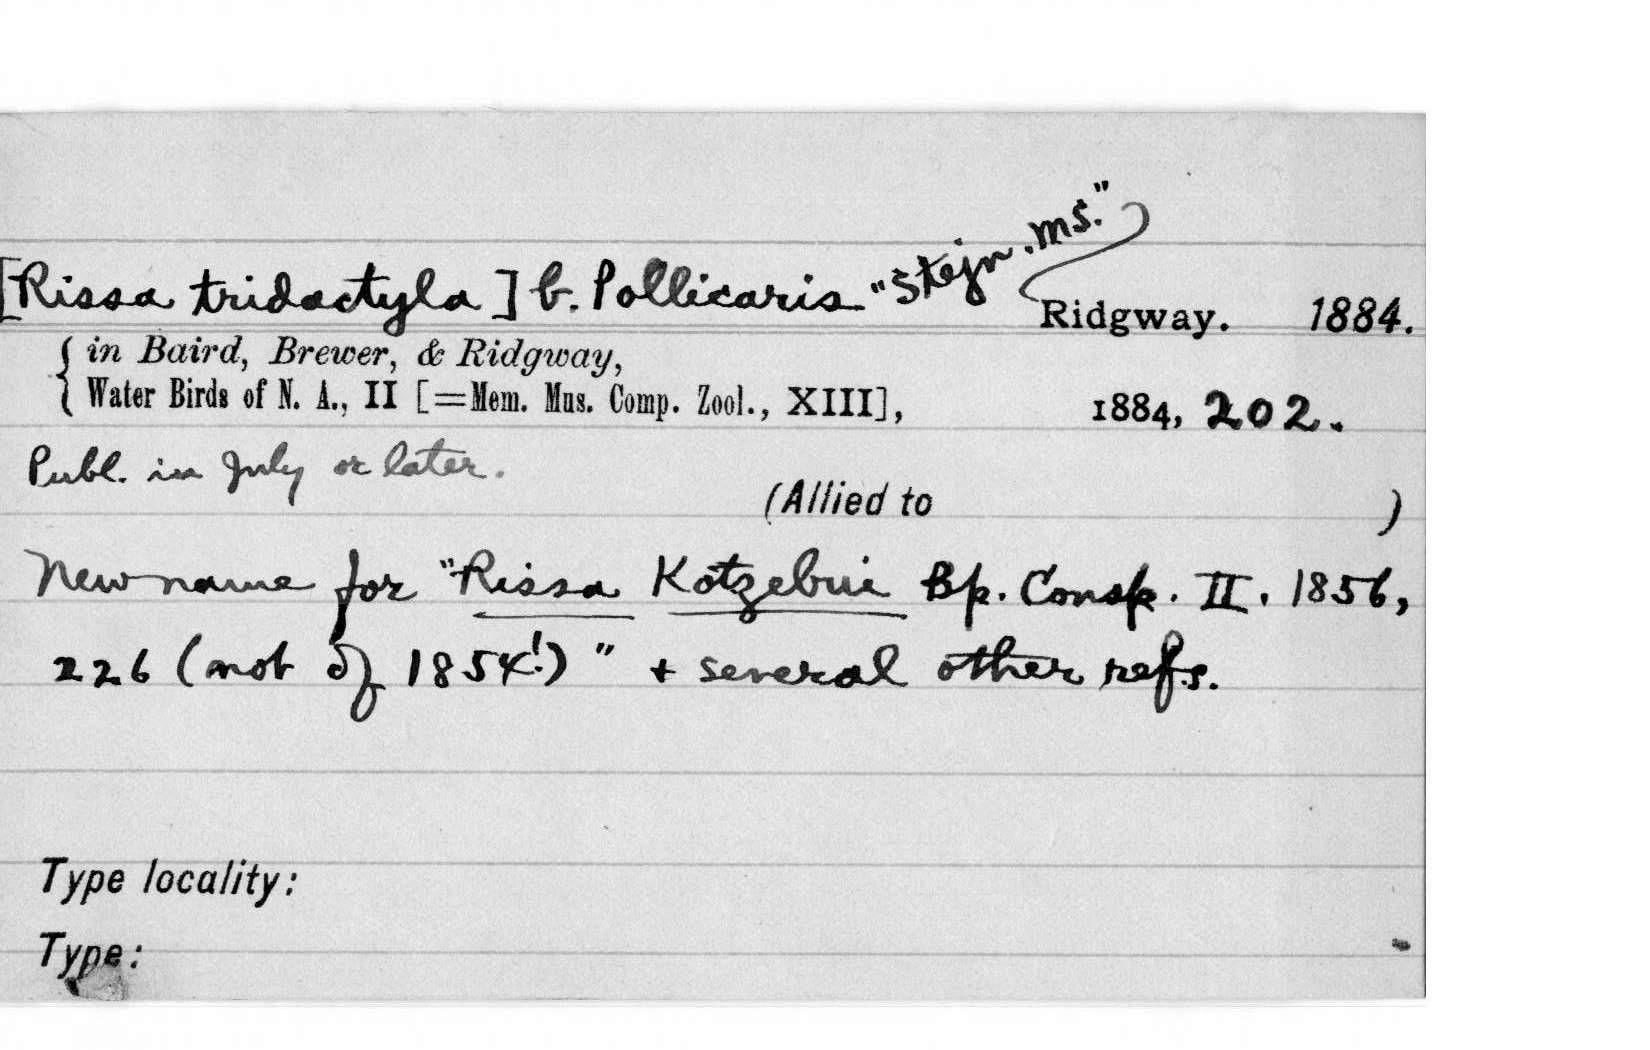 [Rissa tridactyla] b. Pollicaris "Stejn. MS." Ridgway. 1884.
in Baird, Brewer, & Ridgway,
Water Birds of N. A., II [=Mem. Mus. Comp. Zool., XIII], 1884, 202.
Publ. in July or later.
(Allied to )
New name for "Rissa Kotzebui Bp. Consp. II. 1856,
226 (not of 1854!)" + several other refs.
Type locality:
Type: